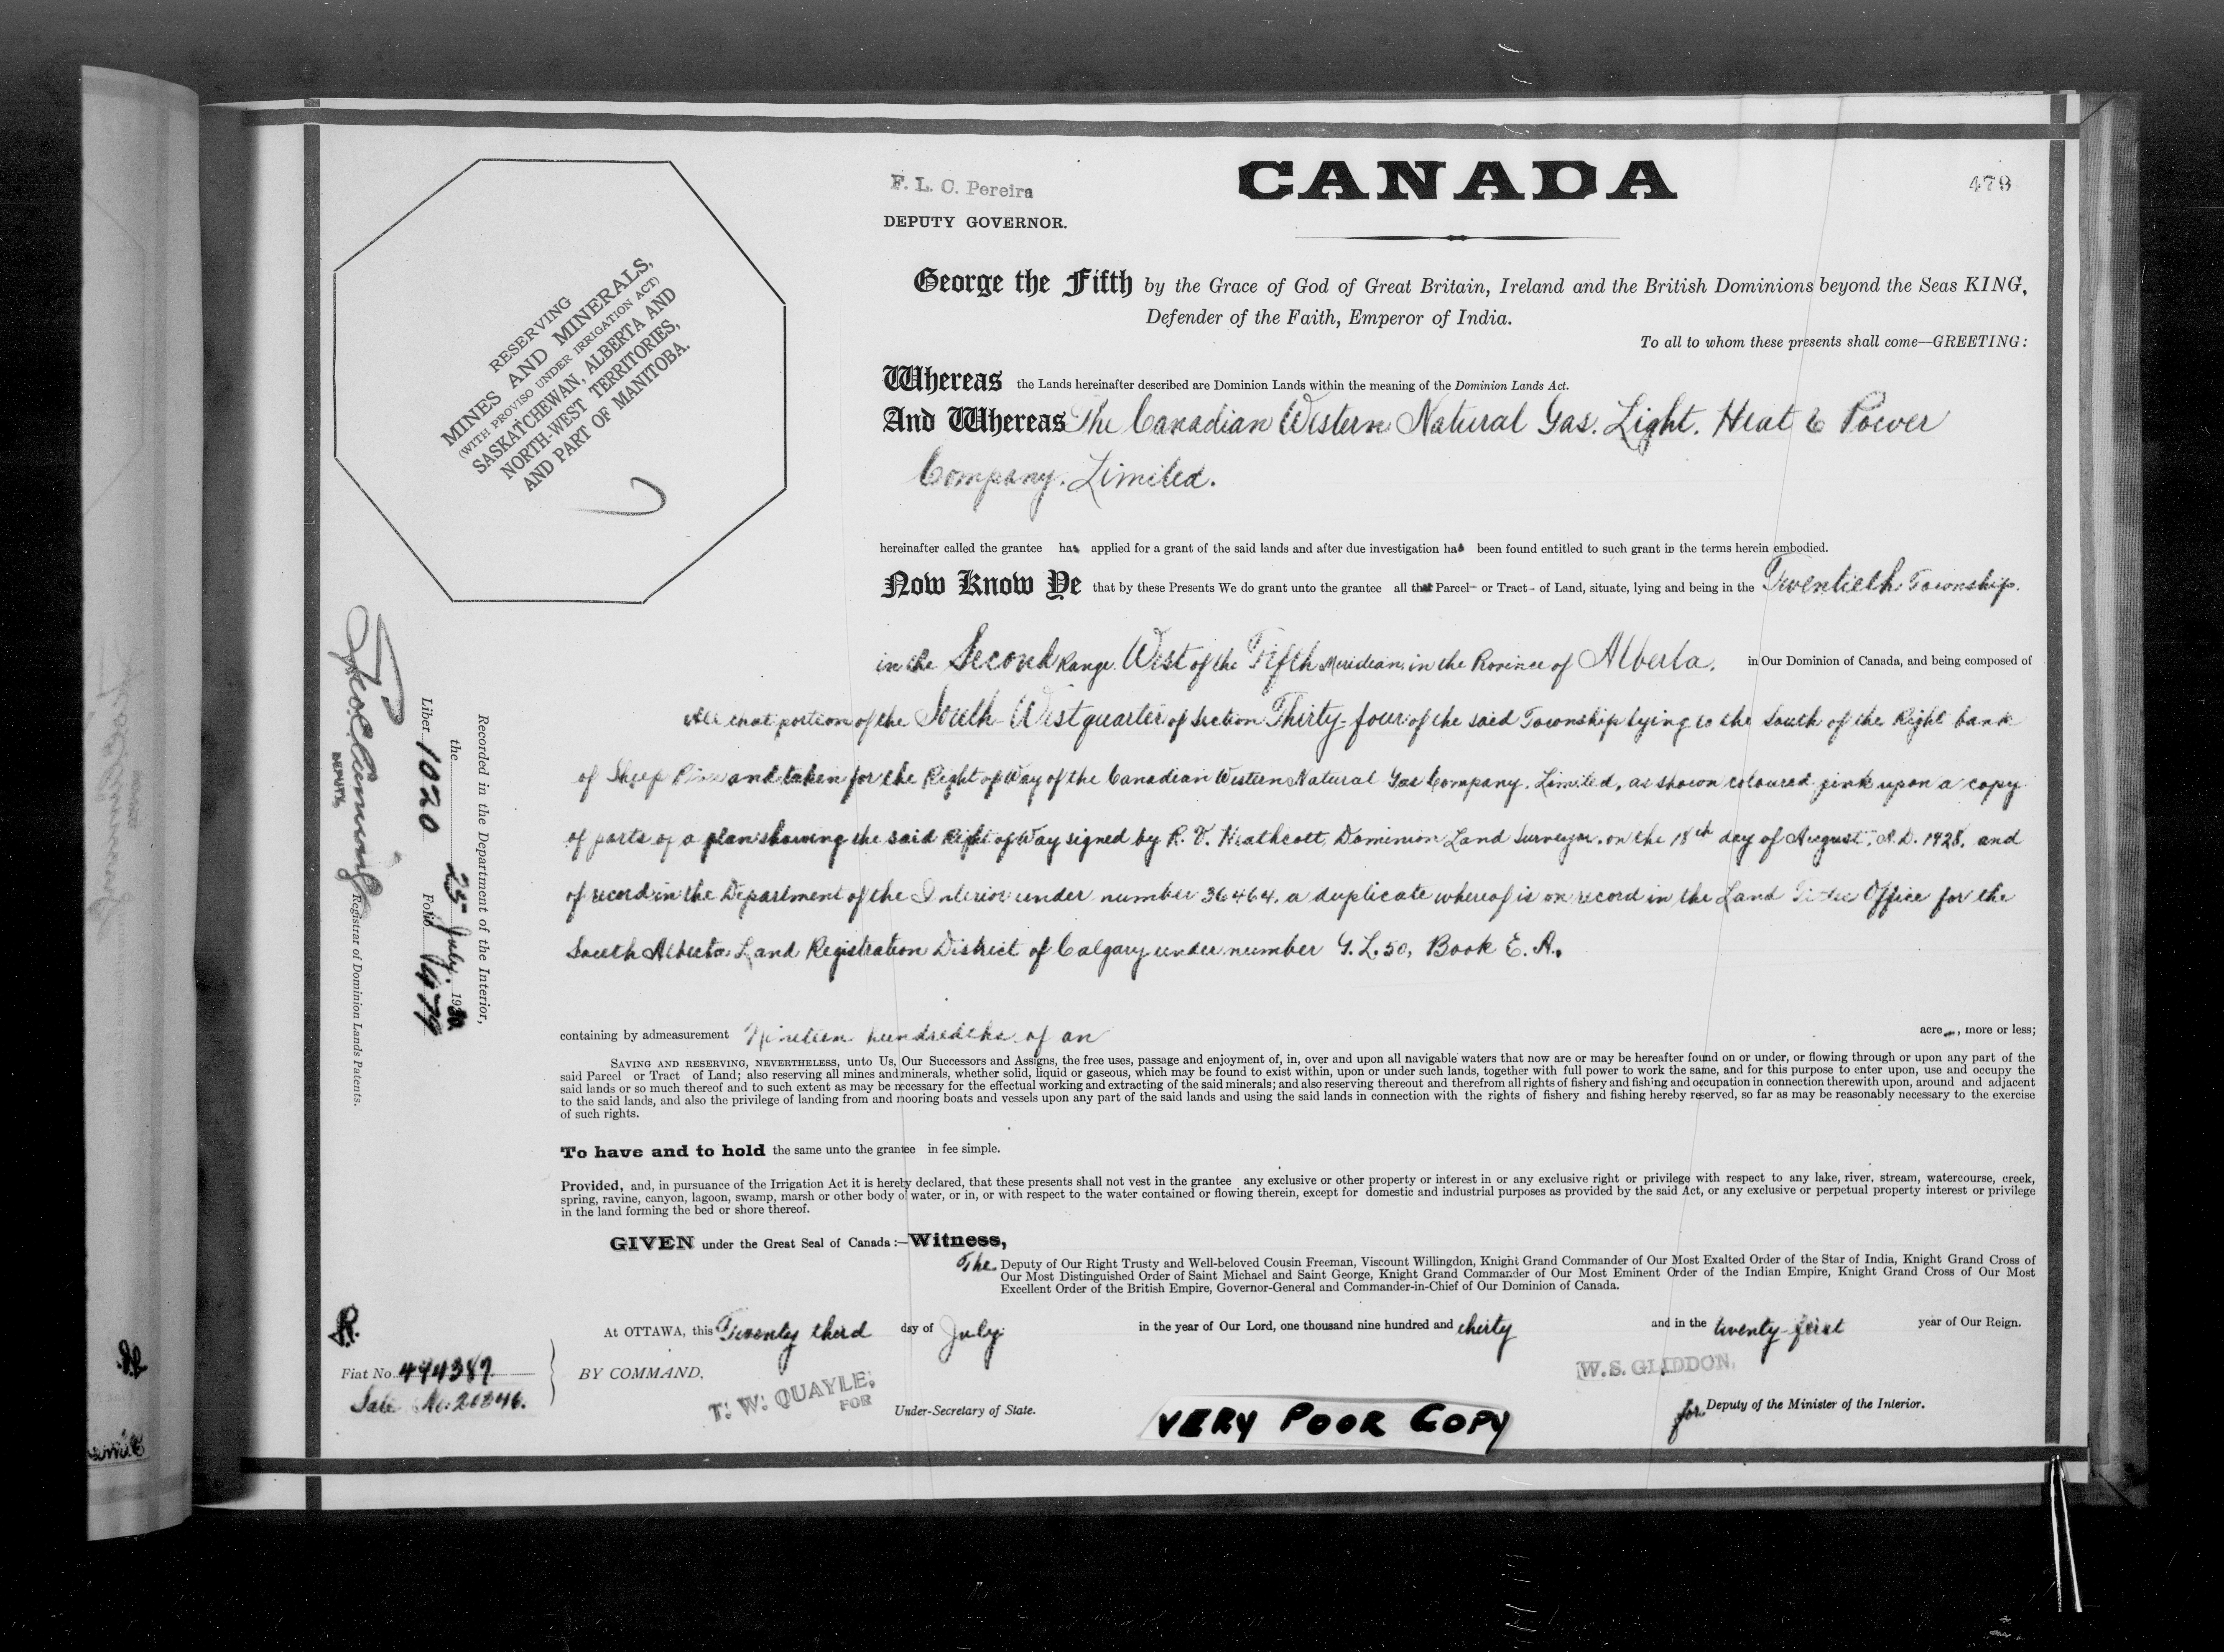 F. L. C. Pereira
DEPUTY GOVERNOR.
CANADA
479
RESERVING
MINES AND MINERALS,
(WITH PROVISO UNDER IRRIGATION ACT)
SASKATCHEWAN, ALBERTA AND
NORTH-WEST TERRITORIES,
AND PART OF MANITOBA.
George the Fifth by the Grace of God of Great Britain, Ireland and the British Dominions beyond the Seas KING,
Defender of the Faith, Emperor of India.
To all to whom these presents shall come—GREETING:
Whereas the Lands hereinafter described are Dominion Lands within the meaning of the Dominion Lands Act.
And Whereas The Canadian Western Natural Gas. Light. Heat & Power
Company. Limited.
hereinafter called the grantee has applied for a grant of the said lands and after due investigation has been found entitled to such grant in the terms herein embodied.
Now Know Ye that by these Presents We do grant unto the grantee all that Parcel- or Tract- of Land, situate, lying and being in the Twentieth Township.
in the Second Range West of the Fifth Meridian, in the Province of Alberta, in Our Dominion of Canada, and being composed of
All that portion of the South West quarter of Section Thirty-four of the said Township lying to the South of the Right bank
of Sheep and taken for the Right of Way of the Canadian Western Natural Gas Company, Limited, as shown coloured pink upon a copy
of parts of a plan showing the said Right of Way signed by R. V. Heathcott, Dominion Land Surveyor, on the 18th day of August, A.D. 1928, and
of record in the Department of the Interior under number 36464, a duplicate whereof is on record in the Land Titles Office for the
South Alberta Land Registration District of Calgary under number G.L.50, Book E. A.
containing by admeasurement Nineteen hundredths of an acre, more or less;
SAVING AND RESERVING, NEVERTHELESS, unto Us, Our Successors and Assigns, the free uses, passage and enjoyment of, in, over and upon all navigable waters that now are or may be hereafter found on or under, or flowing through or upon any part of the
said Parcel or Tract of Land; also reserving all mines and minerals, whether solid, liquid or gaseous, which may be found to exist within, upon or under such lands, together with full power to work the same, and for this purpose to enter upon, use and occupy the
said lands or so much thereof and to such extent as may be necessary for the effectual working and extracting of the said minerals; and also reserving thereout and therefrom all rights of fishery and fishing and occupation in connection therewith upon, around and adjacent
to the said lands, and also the privilege of landing from and mooring boats and vessels upon any part of the said lands and using the said lands in connection with the rights of fishery and fishing hereby reserved, so far as may be reasonably necessary to the exercise
of such rights.
To have and to hold the same unto the grantee in fee simple.
Provided, and, in pursuance of the Irrigation Act it is hereby declared, that these presents shall not vest in the grantee any exclusive or other property or interest in or any exclusive right or privilege with respect to any lake, river, stream, watercourse, creek,
spring, ravine, canyon, lagoon, swamp, marsh or other body of water, or in, or with respect to the water contained or flowing therein, except for domestic and industrial purposes as provided by the said Act, or any exclusive or perpetual property interest or privilege
in the land forming the bed or shore thereof.
GIVEN under the Great Seal of Canada:—Witness,
The Deputy of Our Right Trusty and Well-beloved Cousin Freeman, Viscount Willingdon, Knight Grand Commander of Our Most Exalted Order of the Star of India, Knight Grand Cross of
Our Most Distinguished Order of Saint Michael and Saint George, Knight Grand Commander of Our Most Eminent Order of the Indian Empire, Knight Grand Cross of Our Most
Excellent Order of the British Empire, Governor-General and Commander-in-Chief of Our Dominion of Canada.
At OTTAWA, this Twenty third day of July in the year of Our Lord, one thousand nine hundred and thirty and in the twenty-first year of Our Reign.
BY COMMAND,
T. W. QUAYLE,
FOR
Under-Secretary of State.
W.S. GLIDDON,
for Deputy of the Minister of the Interior.
VERY POOR COPY
R.
Fiat No. 444389
Sale No. 26346.
Recorded in the Department of the Interior,
the 25 July. 1930
Liber 1020 Folio 479
DEPUTY
Registrar of Dominion Lands Patents.